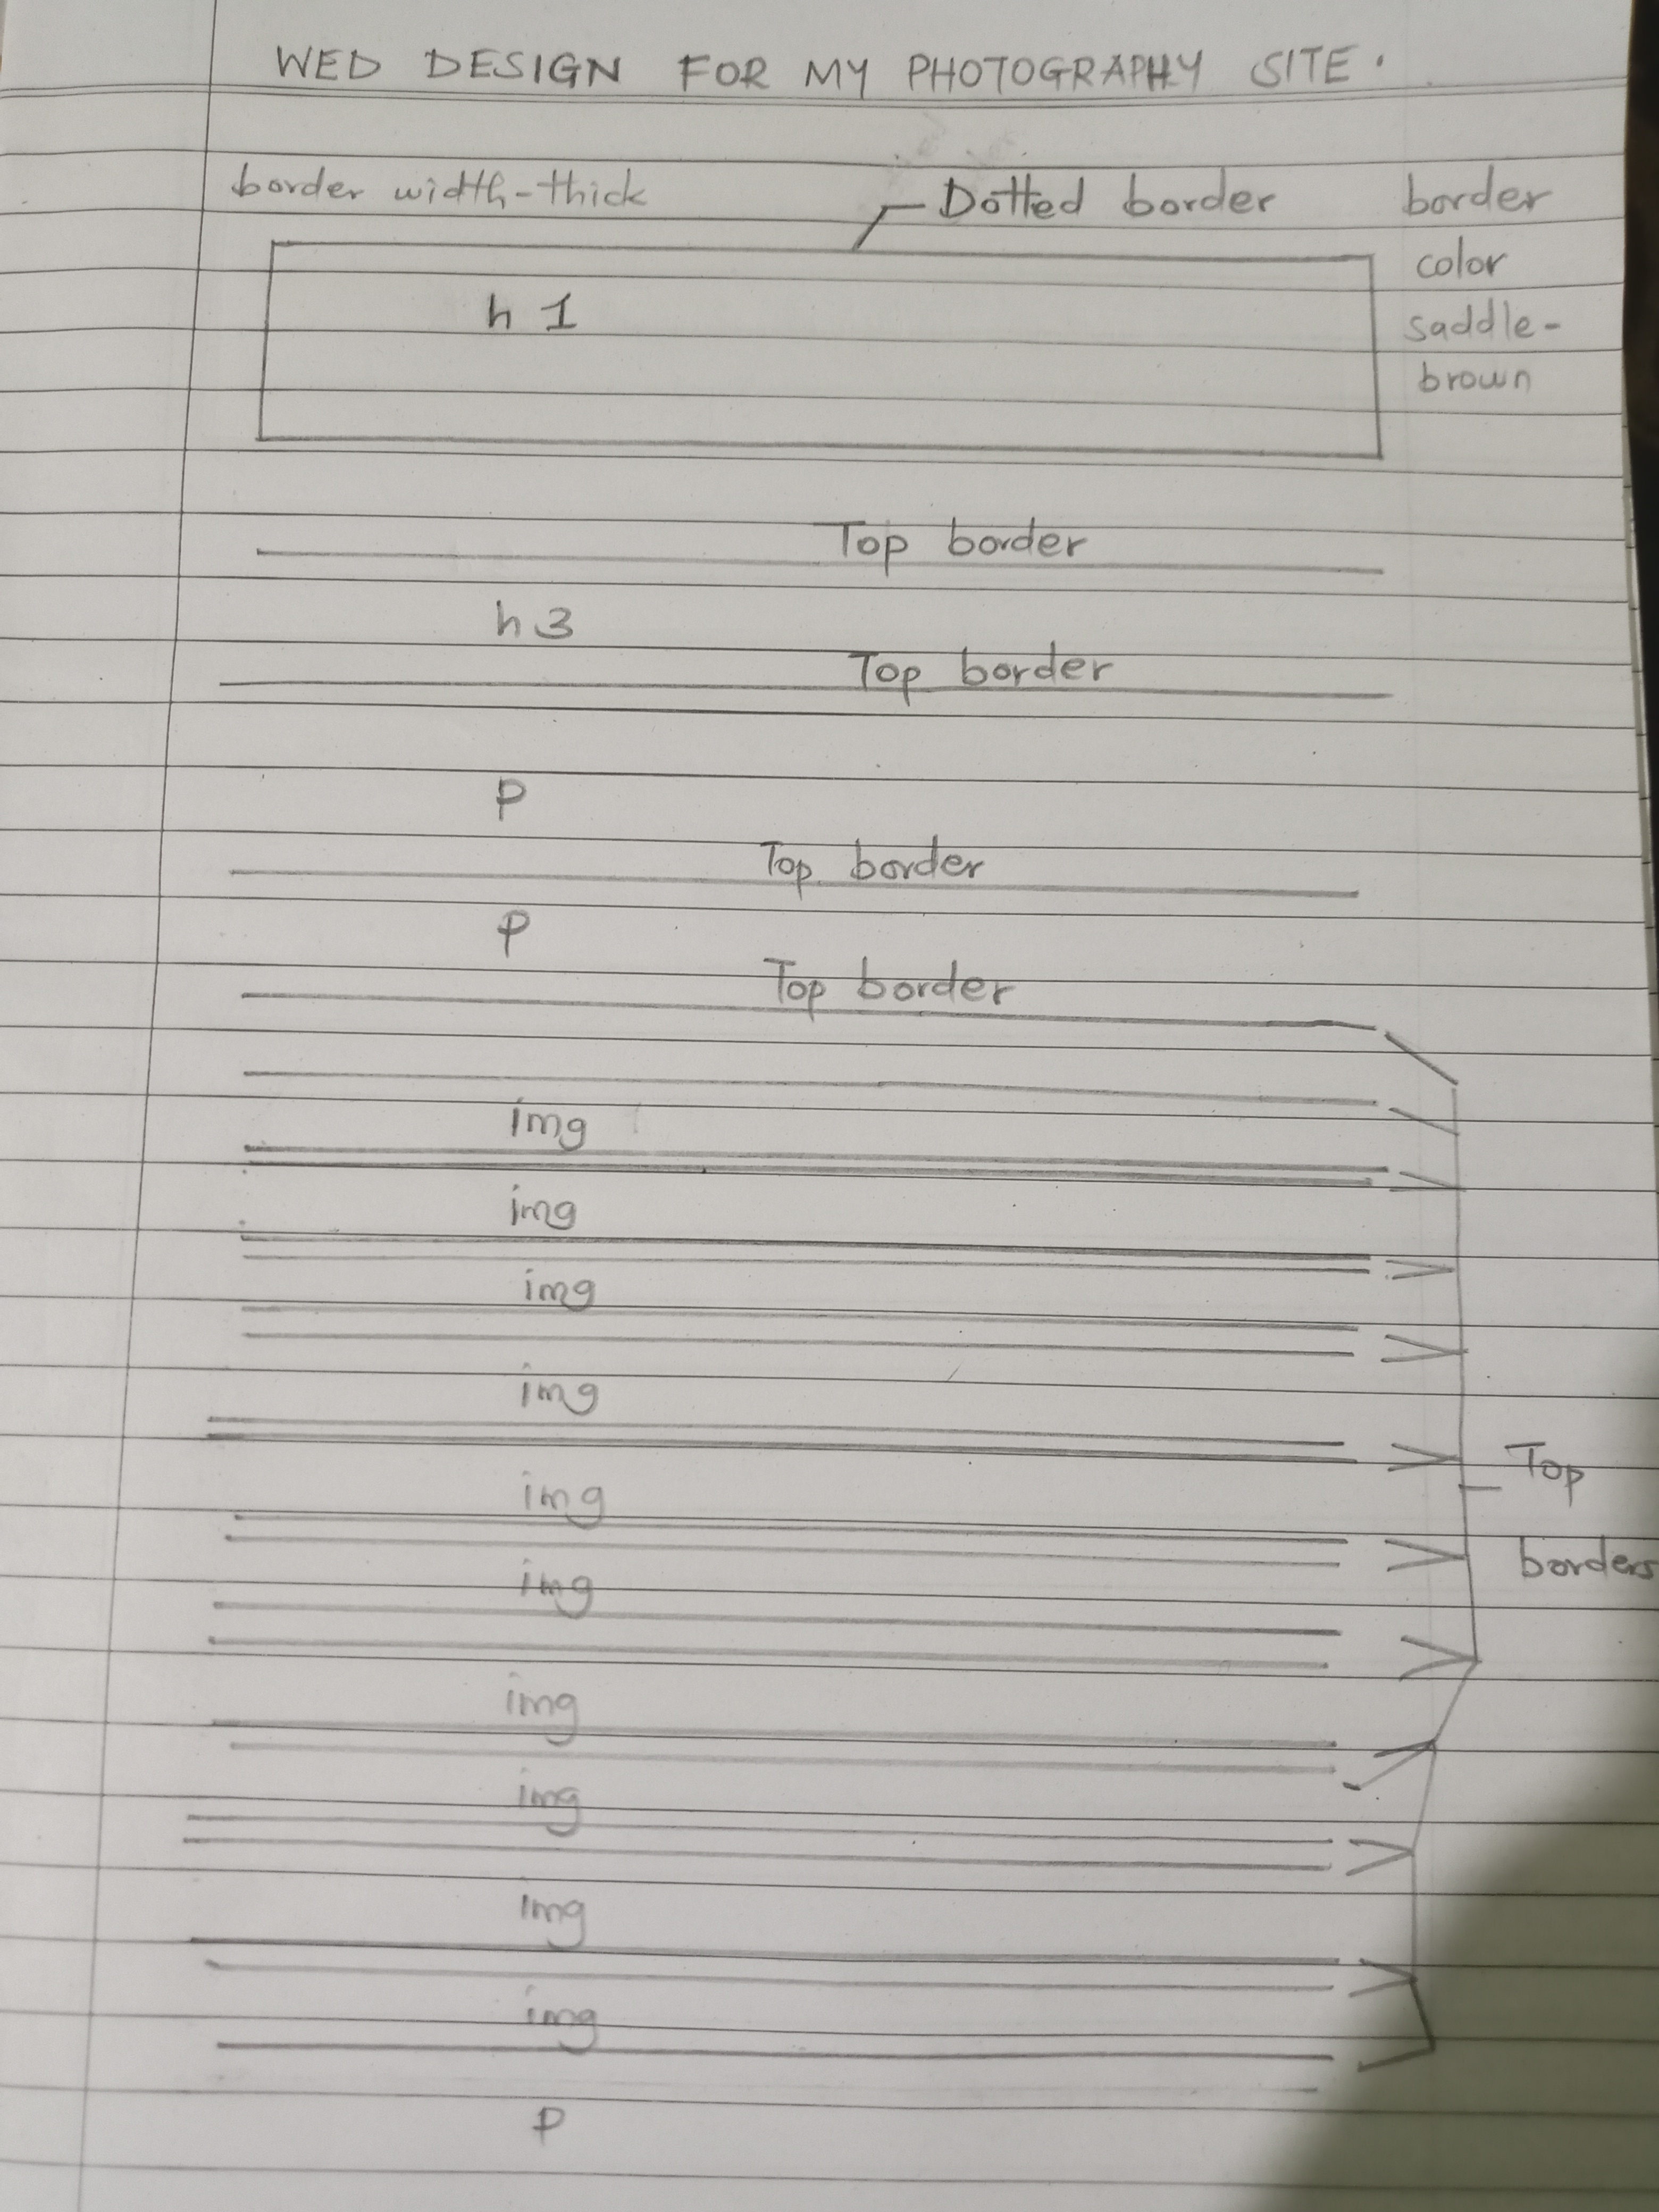 WED DESIGN FOR MY PHOTOGRAPHY SITE.
border width-thick Dotted border border
color
h 1 saddle-
brown
Top border
h3
Top border
P
Top border
P
Top border
img
img
img
img
Top
img
borders
img
img
img
img
img
P